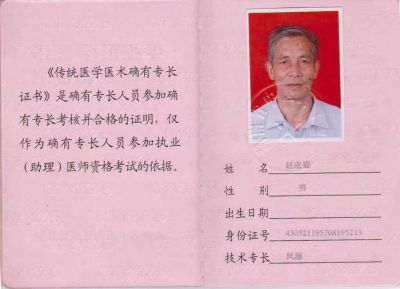 《传统医学医术确有专长
证书》是确有专长人员参加确
有专长考核并合格的证明，仅
作为确有专长人员参加执业
（助理）医师资格考试的依据。
姓 名 赵
性 别 男
出生日期
身份证号 430521195708195213
技术专长